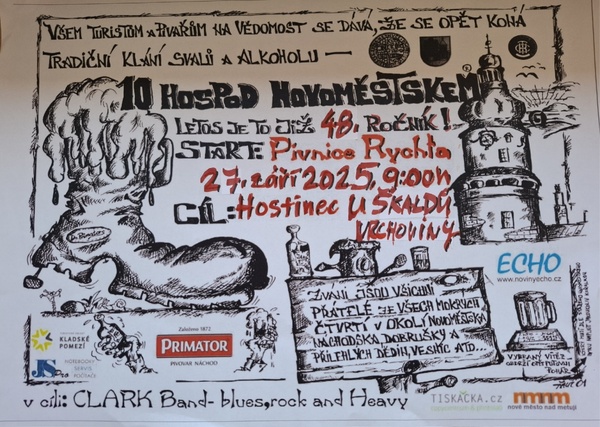 VŠEM TURISTŮM A PIVAŘŮM NA VĚDOMOST SE DÁVÁ, ŽE SE OPĚT KONÁ
TRADIČNÍ KLÁNÍ SVALŮ A ALKOHOLU —
10 HOSPOD NOVOMĚSTSKEM
LETOS JE TO JIŽ 48. ROČNÍK!
START: Pivnice Rychta
27. září 2025, 9:00h
CÍL: Hostinec U ŠKALDŮ
VRCHOVINY
ZVÁNI JSOU VŠICHNI
PŘÁTELÉ ZE VŠECH MOKRÝCH
ČTVRTÍ V OKOLÍ NOVOMĚSTSKA
NÁCHODSKA, DOBRUŠKY A
PŘILEHLÝCH DĚDIN, VESNIC ATD...
ECHO
www.novinyecho.cz
VYBRANÝ VÍTĚZ
OBDRŽÍ
POHÁR
KLADSKÉ
POMEZÍ
NOTEBOOKY
SERVIS
POČÍTAČE
Založeno 1872
PRIMATOR
PIVOVAR NÁCHOD
v cíli: CLARK Band- blues, rock and Heavy
TISKAČKA.cz
nové město nad metují